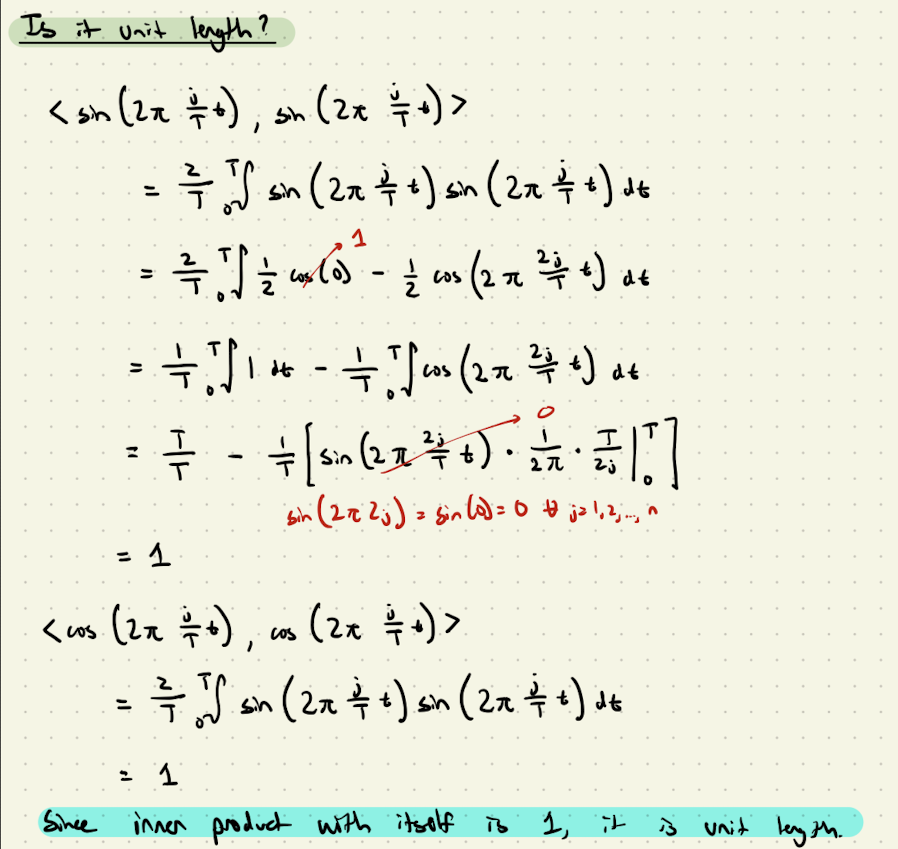 Is it unit length?
< sin(2π j/T t), sin(2π j/T t) >
= 2/T ₀ᵀ∫ sin(2π j/T t) sin(2π j/T t) dt
= 2/T ₀ᵀ∫ 1/2 cos(0) - 1/2 cos(2π 2j/T t) dt
1
= 1/T ₀ᵀ∫ 1 dt - 1/T ₀ᵀ∫ cos(2π 2j/T t) dt
= T/T - 1/T [sin(2π 2j/T t) · 1/2π · T/2j |₀ᵀ]
0
sin(2π 2j) = sin(0) = 0 ∀ j=1,2,..., n
= 1
< cos(2π j/T t), cos(2π j/T t) >
= 2/T ₀ᵀ∫ sin(2π j/T t) sin(2π j/T t) dt
= 1
Since inner product with itself is 1, it is unit length.